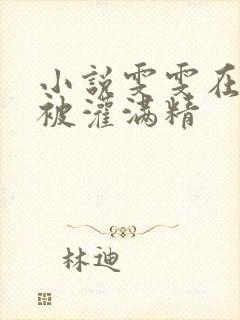 小説雯雯在
被灌满精
林迪